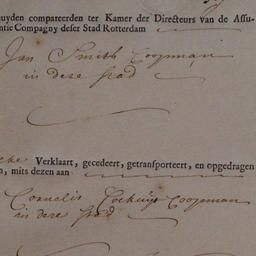 uyden compareerden ter Kamer der Directeurs van de Assu-
ntie Compagny deser Stad Rotterdam
Jan Smith Coopman
in deze stad
Verklaart, gecedeert, getransporteert, en opgedragen
n, mits dezen aan
Cornelis Coopman
in deze stad